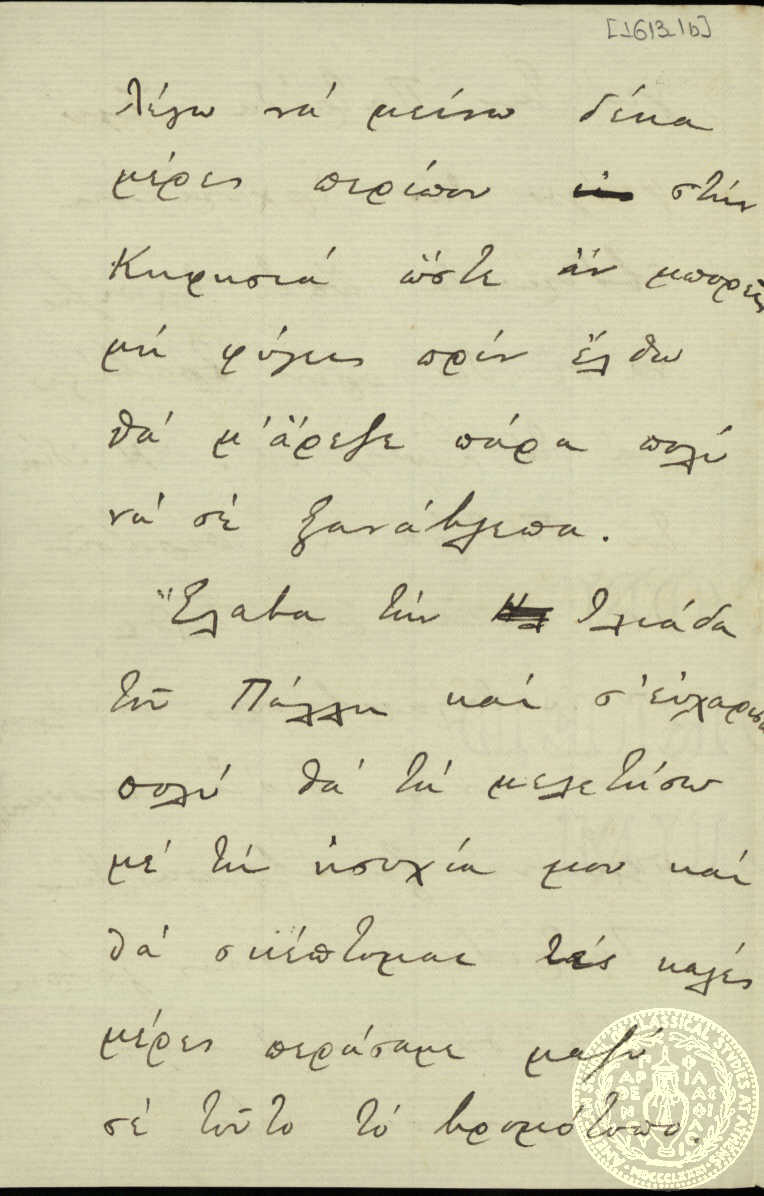 [1613_1b]
λέγω νά μείνω δέκα
μέρες περίπου στήν
Κηφησιά ὥστε ἄν μπορεῖς
μή φύγεις πρίν ἔλθω
θά μ' ἄρεζε πάρα πολύ
νά σέ ξανάβλεπα.
Ἔλαβα τήν Ἰλιάδα
τοῦ Πάλλη καί σ' εὐχαριστῶ
πολύ θά τή μελετήσω
μέ τή ἡσυχία μου καί
θά σκέπτομαι τές καλές
μέρες περάσαμε μαζύ
σέ τοῦτο τό βρωμότοπο.